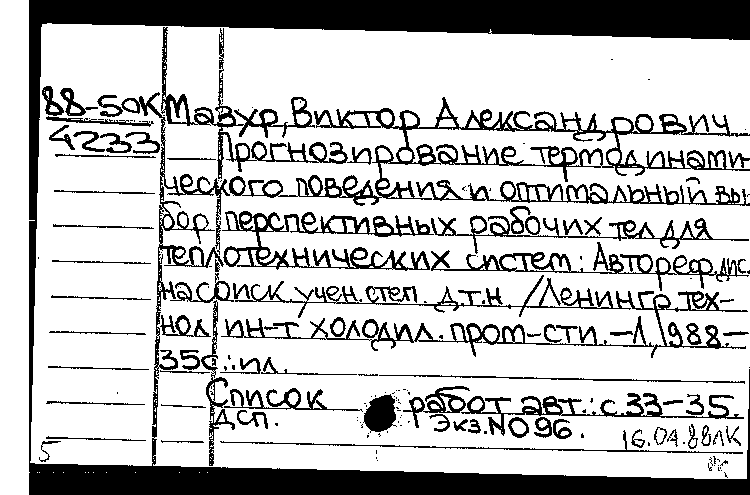 88-50К Мазур, Виктор Александрович
4233 Прогнозирование термодинами-
ческого поведения и оптимальный вы-
бор перспективных рабочих тел для
теплотехнических систем: Автореф. дис.
на соиск. учен. степ. д.т.н. /Ленингр. тех-
нол. ин-т холодил. пром-сти. -Л, 1988.-
35с.:ил.
Список работ авт.: с.33-35.
ДСП. Экз.NО96.
16.04.88ЛК
5